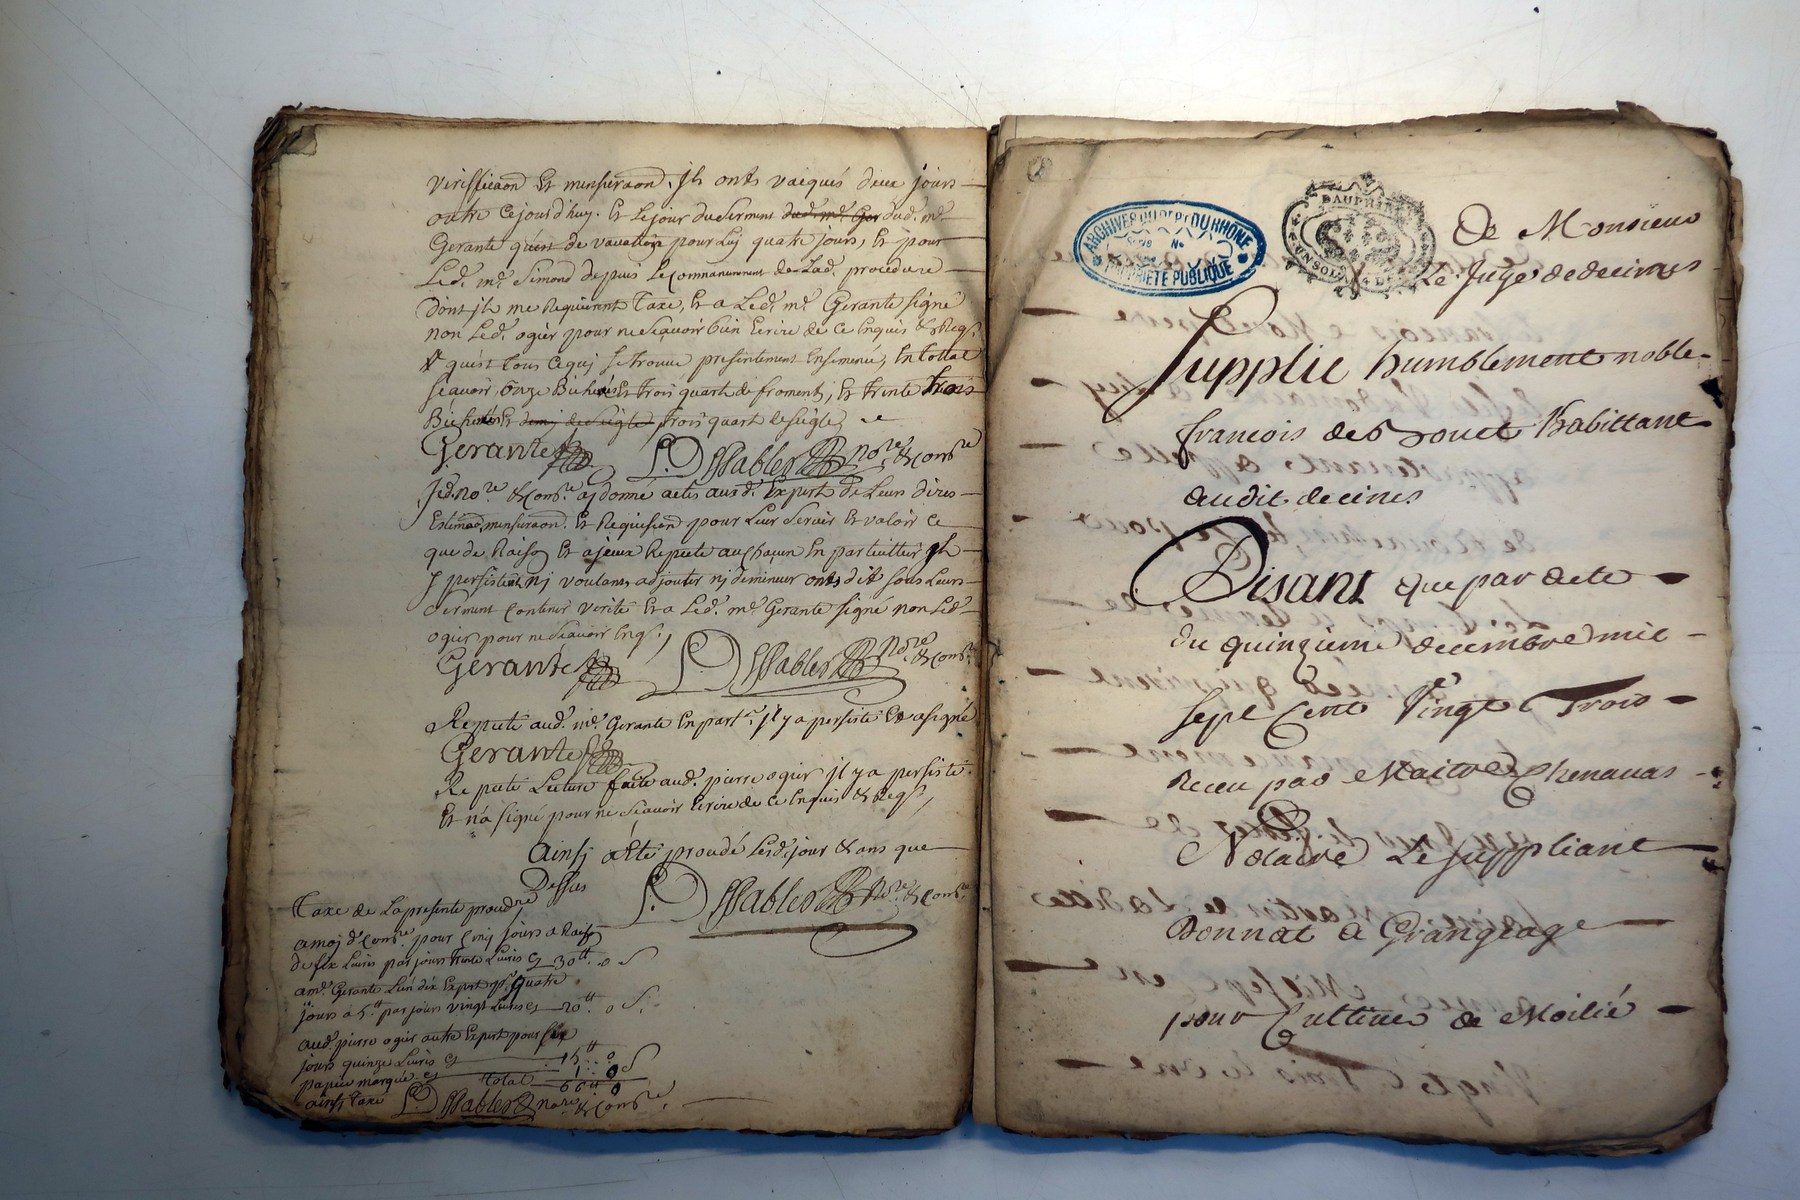 veriffica&#245;n Et mensura&#245;n. Jls onts vaiqués deux jours
outre cejourd'huy. Et Lejour du Serment dud. mr. Ger dud. mr.
Gerante quest de vavattige pour Luy quatre jours, Et pour
Led. mr. Simond depuis Le commancement de Lad. procedure
dont jls me Requierent Taxe, Et a Led. mr. Gerante signé
non Led. ogier pour ne Sçauoir bien Ecrire de ce Enquis & Reqs.
& quest tous ce quj se trouue presentement Ensemencé, En tottal
sçauoir onze Bicherées Et trois quart de froment, Et trente trois
Bicherées Et demj de seigle trois quart de seigle
Gerante
L. Dessables nore. & comre
Jed. nore & comre. aj donné actes ausd. Expert de Leurs dires
Estima&#245;n, mensura&#245;n. Et Requisi&#245;n pour Leur Seruir Et valoir ce
que de Raison Et a jceux Repeté au chacun En particullier jls
y persistent nj voulants adjouter nj diminuer onts dit sous Leurs
Serment contenir verité Et a Led. mr. Gerante signé non Led.
ogier pour ne Sçauoir Enqs.
Gerante
L. Dessables nore. & comre.
Repeté aud. mr. Gerante En partr. jl y a persisté Et a signé
Gerante
Repeté Lecture faite aud. pierre ogier jl y a persisté
Et n'a signé pour ne Sçauoir Ecrire de ce Enquis & Reqs,
Ainsj a Eté proudé Lesd. jour & ans que
Dessus
L. Dessables nore. & comre.
Taxe de La presente proudre
a moj d. comre. pour cinq jours a Raison
de six Liures par jours trente Liures cy 30tt. 0 S
a mr. Gerante L'un des Expert pr. quatre
jours a 5tt. par jours vingt Liures cy 20tt 0 S.
aud. pierre ogier autre Expert pour six
jours quinze Liures cy 15tt 0
papier marqué cy 1. 0 S
total 66tt 0
ainsj taxé L. Dessables nore & comre,
ARCHIVES DU DEPt DU RHONE
PROPRIETE PUBLIQUE
DAUPHINE
A Monsieur
Le Juge de decines
Supplie humblement noble
francois des Rouet habittant
audit decines
Disant que par acte
du quinzieme decembre mil
sept Cent Vingt Trois
Receu par Maitre Chenauas
Notaire Le suppliant
Donnat a Grangeage
pour Cultiuer de Moitié